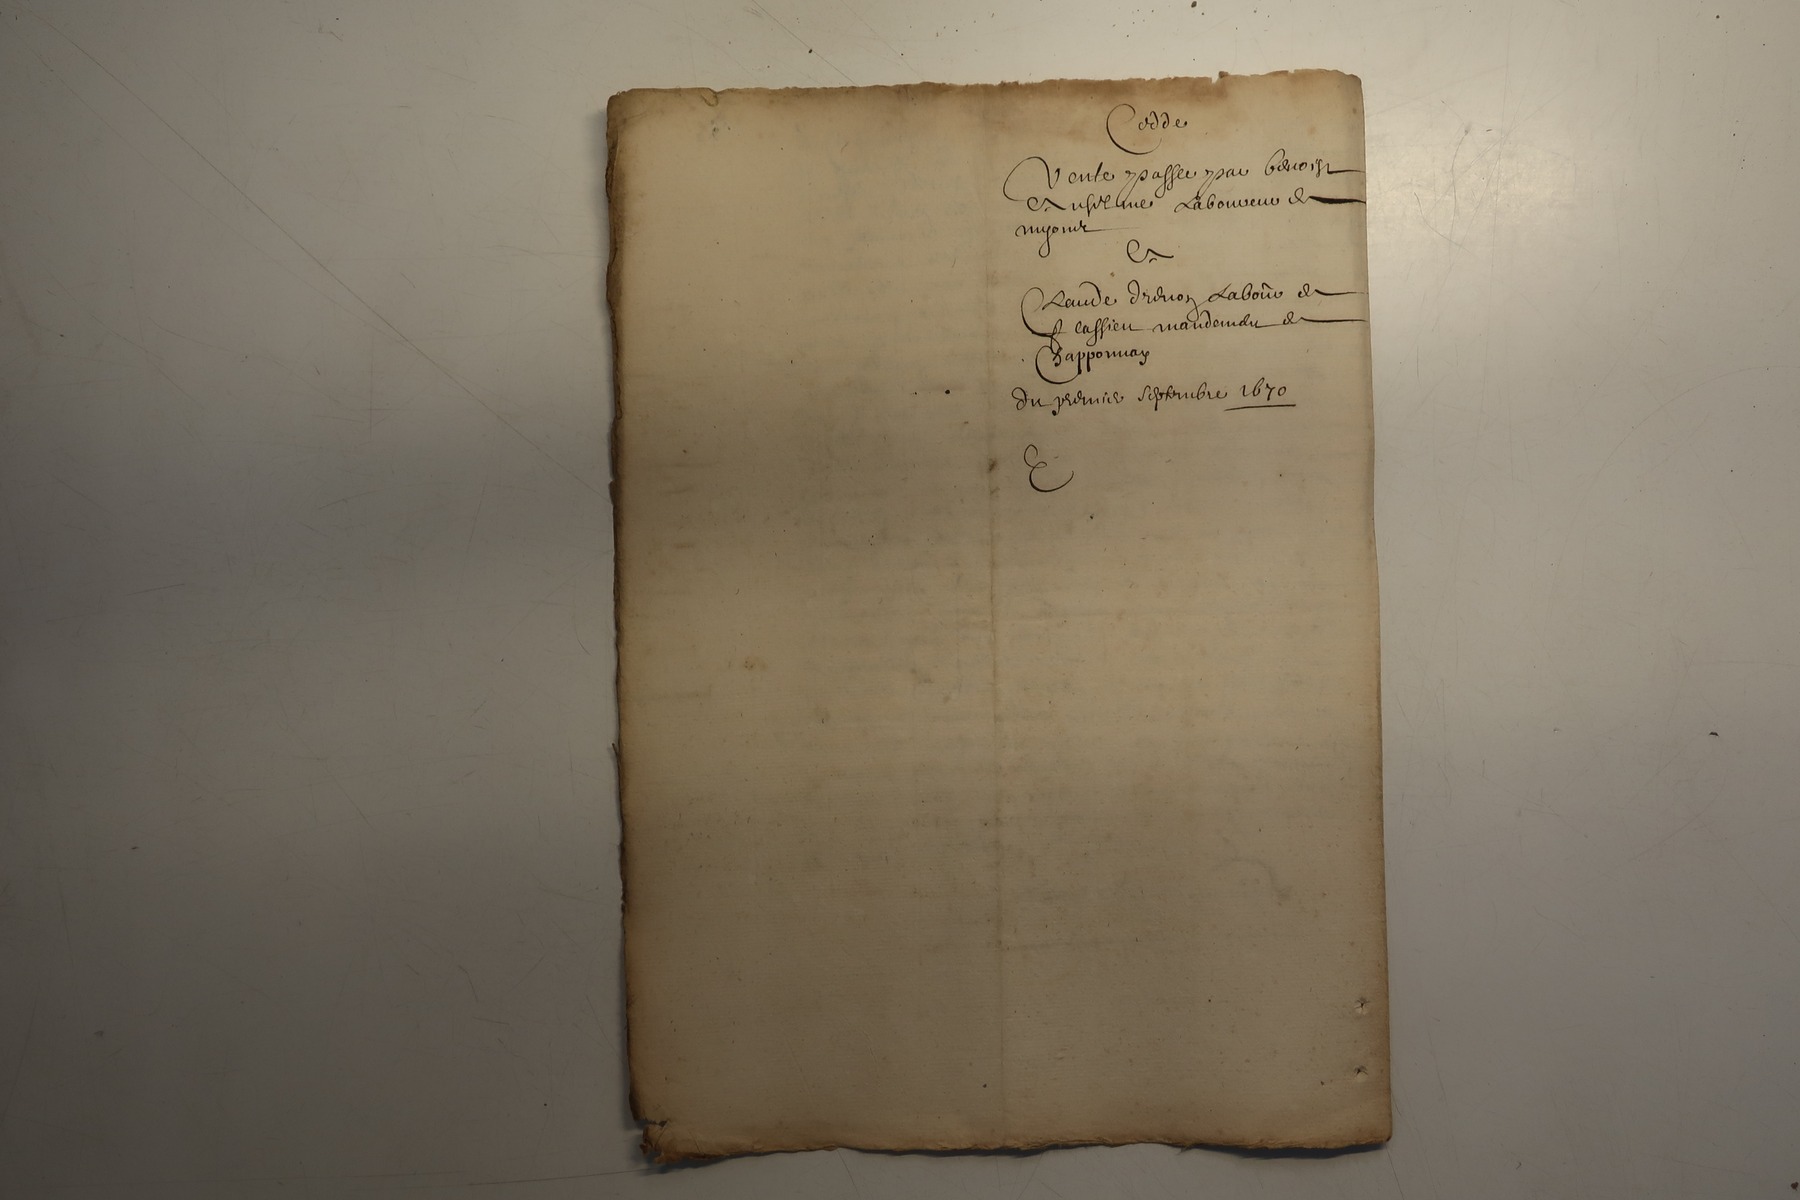 Codde
Vente passee par benoist
Anselme Laboureur de
myons
Et
Claude Labour de
mandement de
Chapponnay
du premier septembre 1670